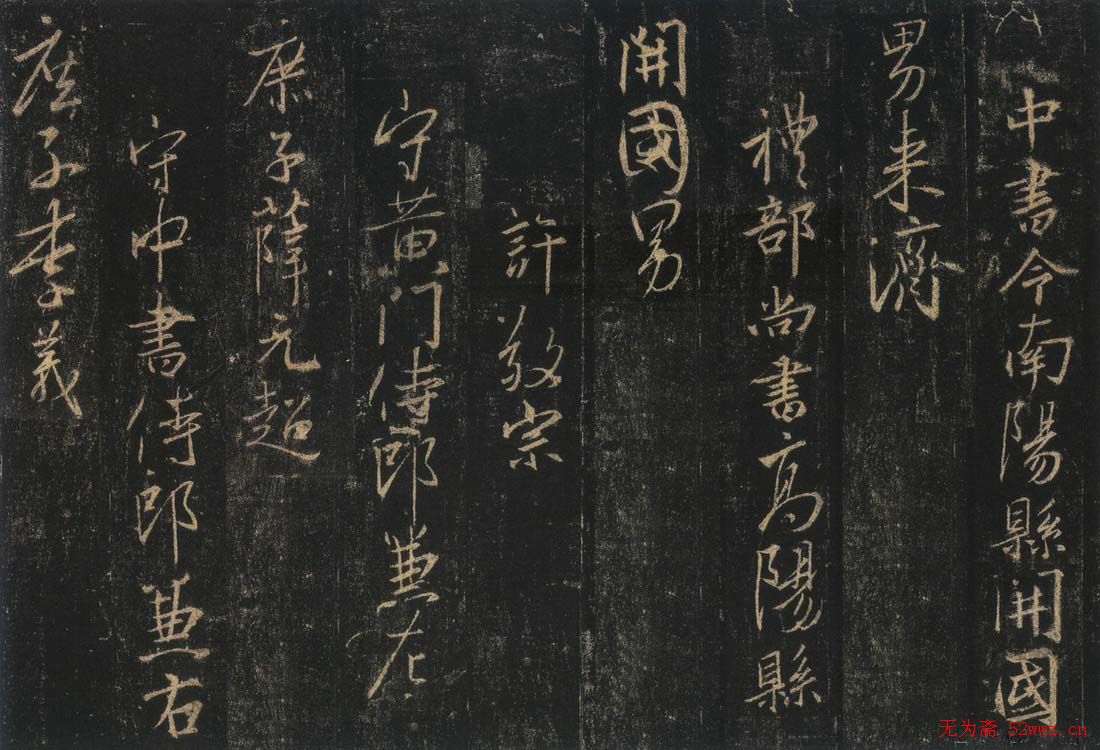 中書令南陽縣開國
男来濟
禮部尚書高陽縣
開國男
許敬宗
守黄门侍郎兼左
庶子薛元超
守中書侍郎兼右
庶子李義
无为斋 52wwz.cn